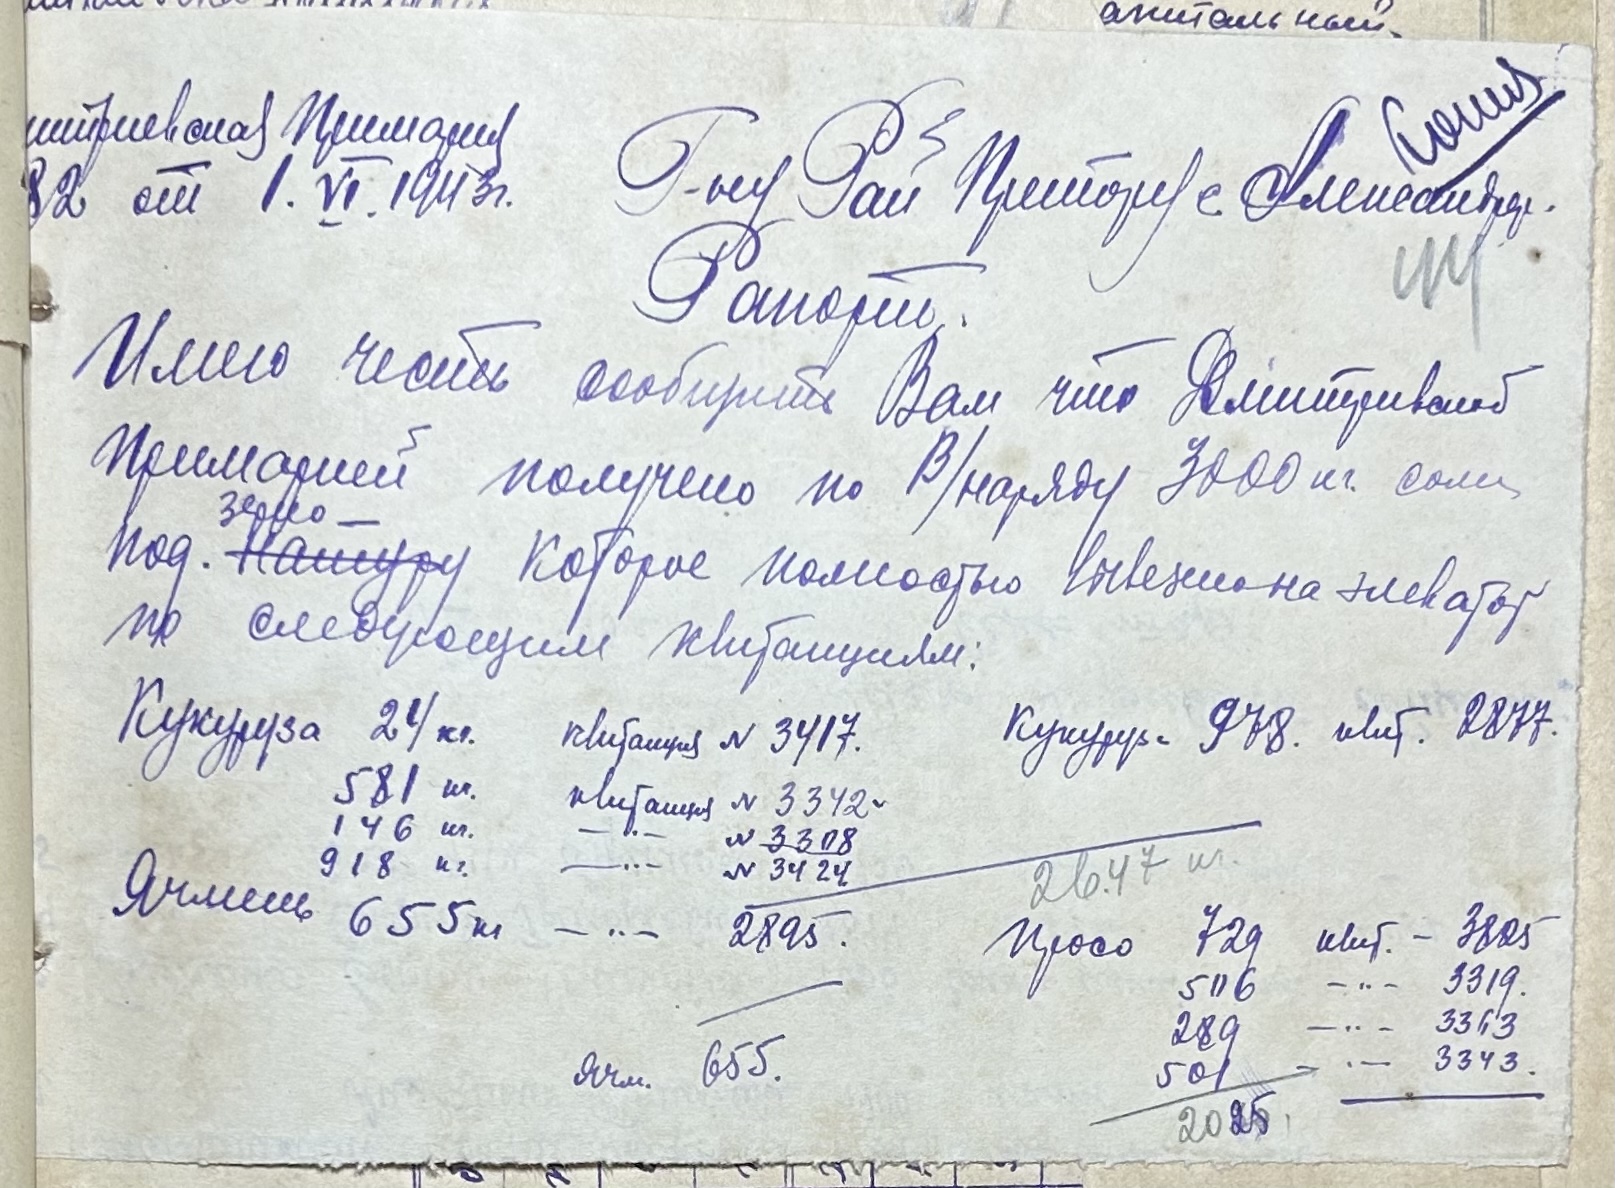 акитальный.
Копия
митриевская Примария
82 от 1. VI. 1943 г.
Г-ну Рай Претору с. Александр.
Рапорт.
Имею честь сообщить Вам что Дмитриевской
Примарией получено по В/наряду 3000 кг. соли
под. зерно Натуру которое полностью вывезено на элеватор
по следующим квитанциям:
Кукуруза 24 кг. квитанция N 3417.
581 кг. квитанция N 3342
146 кг. —··— N 3308
918 кг. —··— N 3424
Кукуруз 978. квит. 2877.
2647 кг.
Ячмень 655 кг —··— 2895.
яч. 655.
Просо 729 квит. - 3805
506 —··— 3319.
289 —··— 3313
501 —··— 3343.
2025